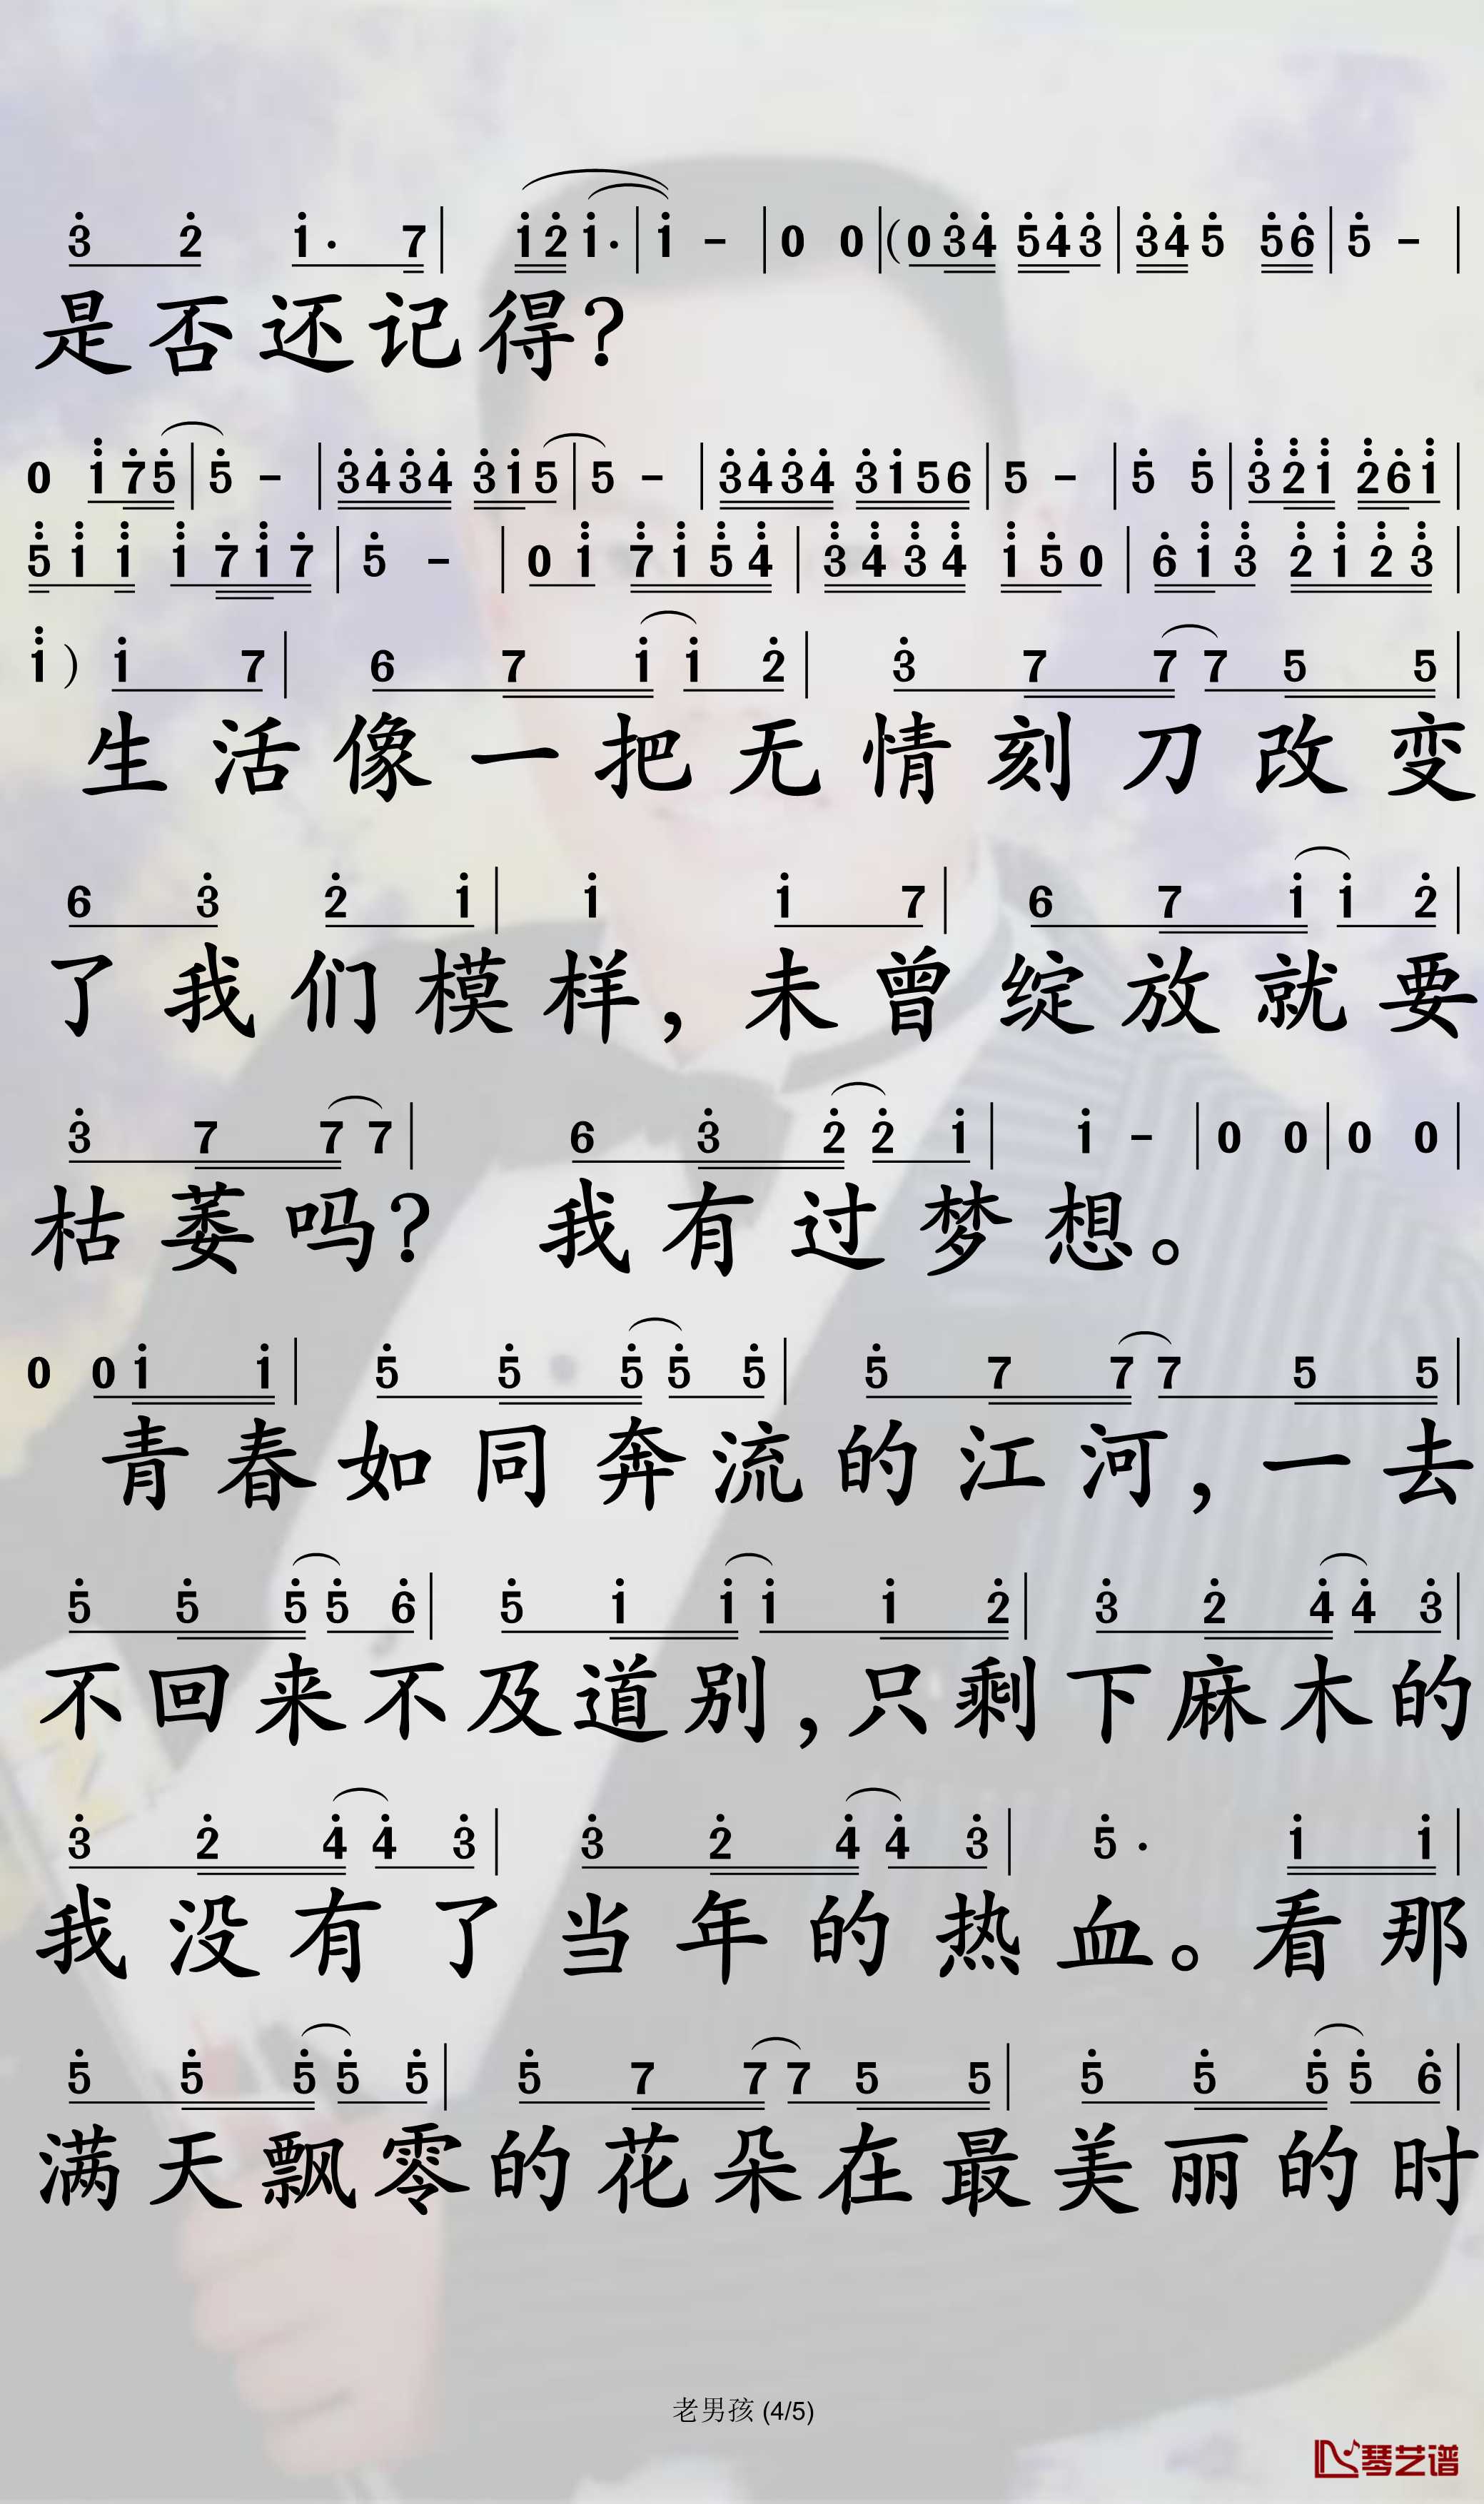 3̇ 2̇ 1̇· 7 | 1̇ 2̇ 1̇· | 1̇ - | 0 0 | (0 3̇ 4̇ 5̇ 4̇ 3̇ | 3̇ 4̇ 5̇ 5̇ 6̇ | 5̇ - |
是否还记得?
0 1̈ 7̇ 5̇ | 5̇ - | 3̇ 4̇ 3̇ 4̇ 3̇ 1̇ 5 | 5 - | 3̇ 4̇ 3̇ 4̇ 3̇ 1̇ 5 6 | 5 - | 5̇ 5̇ | 3̈ 2̈ 1̈ 2̈ 6̇ 1̈ |
5̇ 1̈ 1̈ 1̈ 7̇ 1̈ 7̇ | 5̇ - | 0 1̈ 7̈ 1̈ 5̈ 4̈ | 3̈ 4̈ 3̈ 4̈ 1̈ 5̇ 0 | 6̇ 1̈ 3̈ 2̈ 1̈ 2̈ 3̈ |
1̈ ) 1̇ 7 | 6 7 1̇ 1̇ 2̇ | 3̇ 7 7 7 5 5 |
生活像一把无情刻刀改变
6 3̇ 2̇ 1̇ | 1̇ 1̇ 7 | 6 7 1̇ 1̇ 2̇ |
了我们模样,未曾绽放就要
3̇ 7 7 7 | 6 3̇ 2̇ 2̇ 1̇ | 1̇ - | 0 0 | 0 0 |
枯萎吗? 我有过梦想。
0 0 1̇ 1̇ | 5̇ 5̇ 5̇ 5̇ 5̇ | 5̇ 7 7 7 5 5 |
青春如同奔流的江河,一去
5̇ 5̇ 5̇ 5̇ 6̇ | 5̇ 1̇ 1̇ 1̇ 1̇ 2̇ | 3̇ 2̇ 4̇ 4̇ 3̇ |
不回来不及道别,只剩下麻木的
3̇ 2̇ 4̇ 4̇ 3̇ | 3̇ 2̇ 4̇ 4̇ 3̇ | 5̇· 1̇ 1̇ |
我没有了当年的热血。看那
5̇ 5̇ 5̇ 5̇ 5̇ | 5̇ 7 7 7 5 5 | 5̇ 5̇ 5̇ 5̇ 6̇ |
满天飘零的花朵在最美丽的时
老男孩 (4/5)
琴艺谱